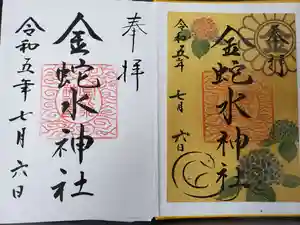 奉拝
金蛇水神社
令和五年七月六日
金
金蛇水神社
令和五年
七月
六日